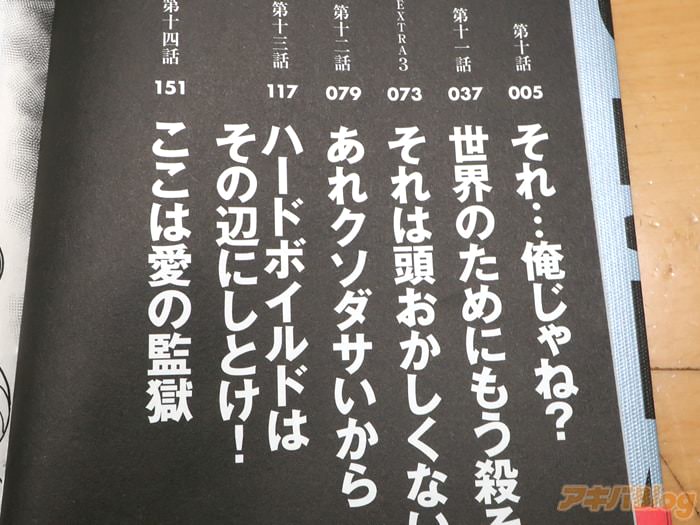 第十話
005
それ…俺じゃね？
第十一話
037
世界のためにもう殺そ
EXTRA3
073
それは頭おかしくない
第十二話
079
あれクソダサいから
第十三話
117
ハードボイルドは
その辺にしとけ！
第十四話
151
ここは愛の監獄
アキバBlog